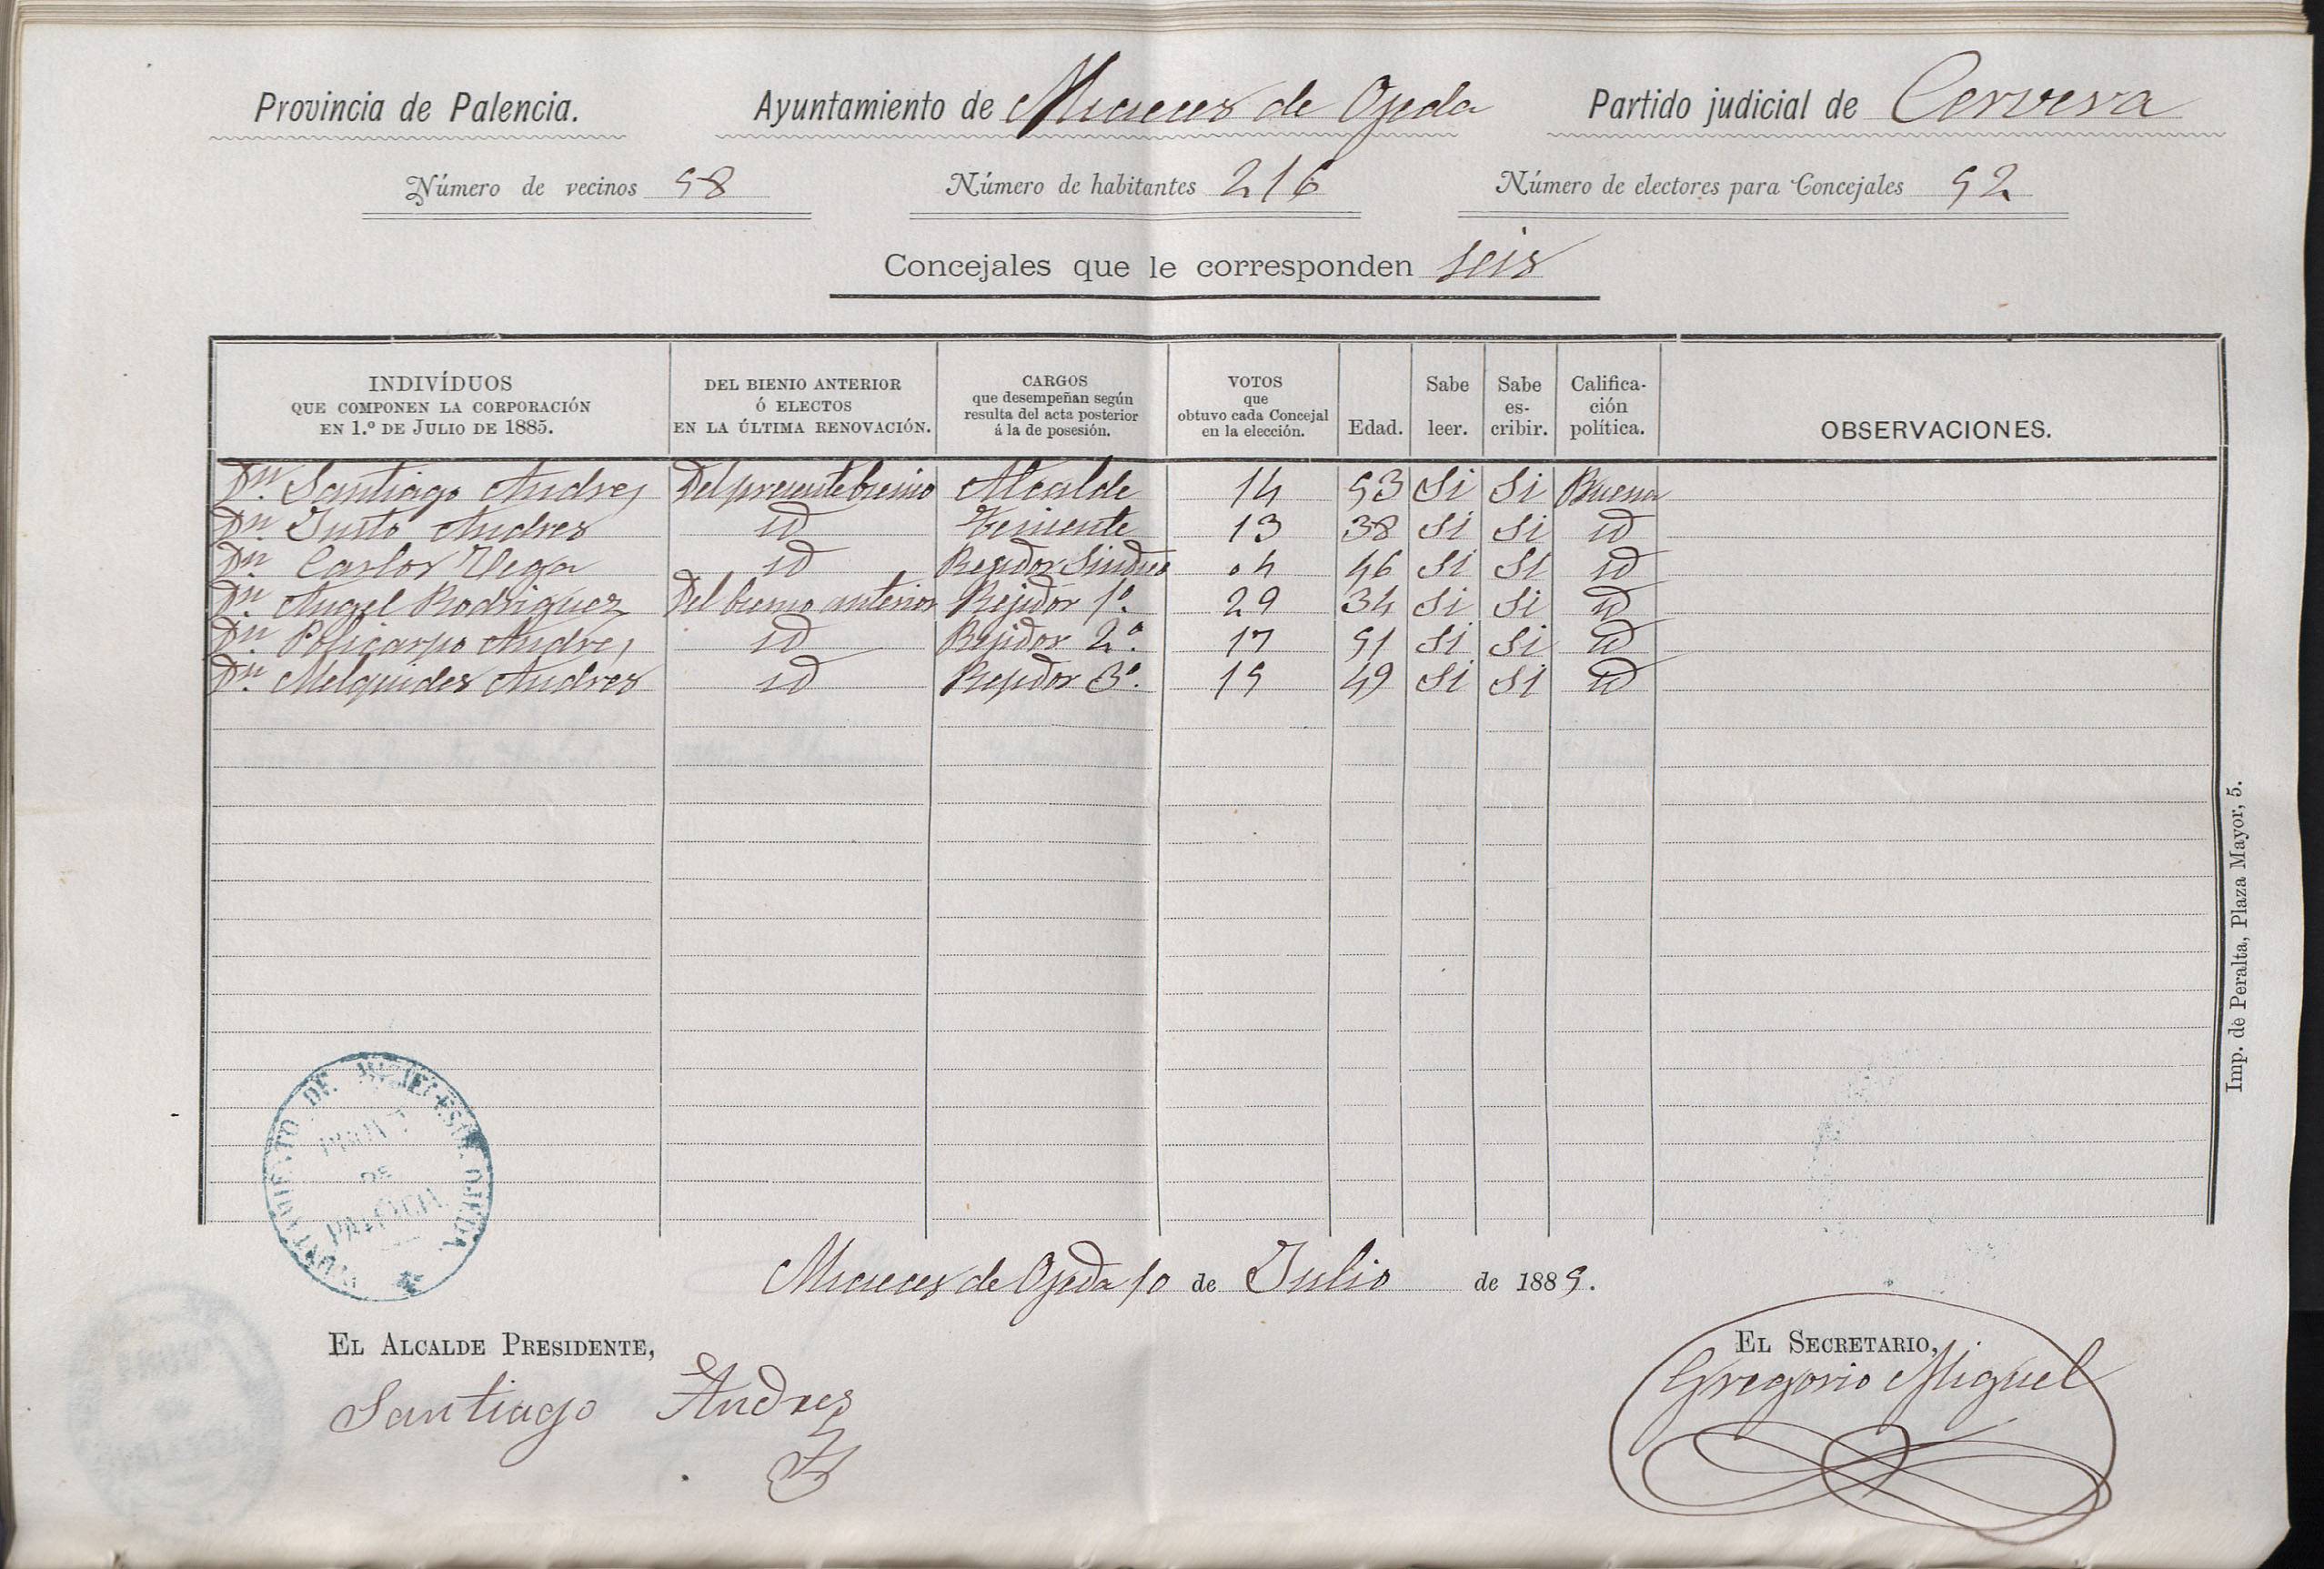 Provincia de Palencia. Ayuntamiento de Micieces de Ojeda Partido judicial de Cervera
Número de vecinos 58 Número de habitantes 216 Número de electores para Concejales 52
Concejales que le corresponden seis
INDIVÍDUOS QUE COMPONEN LA CORPORACIÓN EN 1.º DE JULIO DE 1885. DEL BIENIO ANTERIOR Ó ELECTOS EN LA ÚLTIMA RENOVACIÓN. CARGOS que desempeñan según resulta del acta posterior á la de posesión. VOTOS que obtuvo cada Concejal en la elección. Edad. Sabe leer. Sabe es-cribir. Califica-ción política. OBSERVACIONES.
Dn. Santiago Andres Del presente bienio Alcalde 14 53 Si Si Buena
Dn. Justo Andres id Teniente 13 38 Si Si id
Dn. Carlos Vega id Regidor Sindico 04 46 Si Si id
Dn. Angel Rodriguez Del bienio anterior Rejidor 1º. 29 34 Si Si id
Dn. Policarpo Andres id Rejidor 2º. 17 51 Si Si id
Dn. Melquides Andres id Rejidor 3º. 15 49 Si Si id
AYUNTAMIENTO DE MICIECES DE OJEDA
PROV.
DE
PALENCIA
Micieces de Ojeda 10 de Julio de 1885.
EL ALCALDE PRESIDENTE, EL SECRETARIO,
Santiago Andres Gregorio Miguel
Imp. de Peralta, Plaza Mayor, 5.